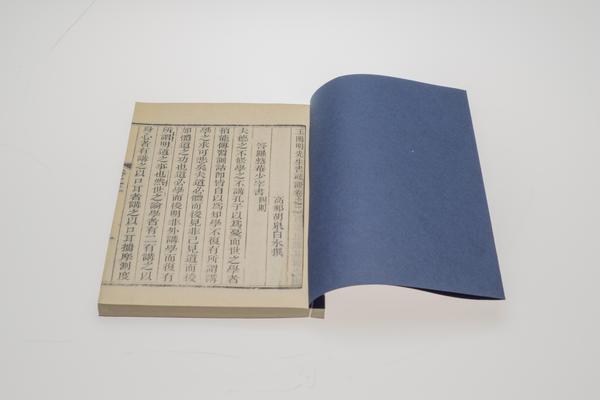 王陽明先生書疏證卷之
高郵胡泉白水撰
答羅整菴少宰書四則
夫德之不修學之不講孔子以爲憂而世之學者
稍能傳習訓詁卽皆自以爲知學不復有所謂講
學之求可悲矣夫道必體而後見非已見道而後
加體道之功也道必學而後明非外講學而復有
所謂明道之事也然世之論學者有二有講之以
身心者有講之以口耳者講之以口耳揣摩測度